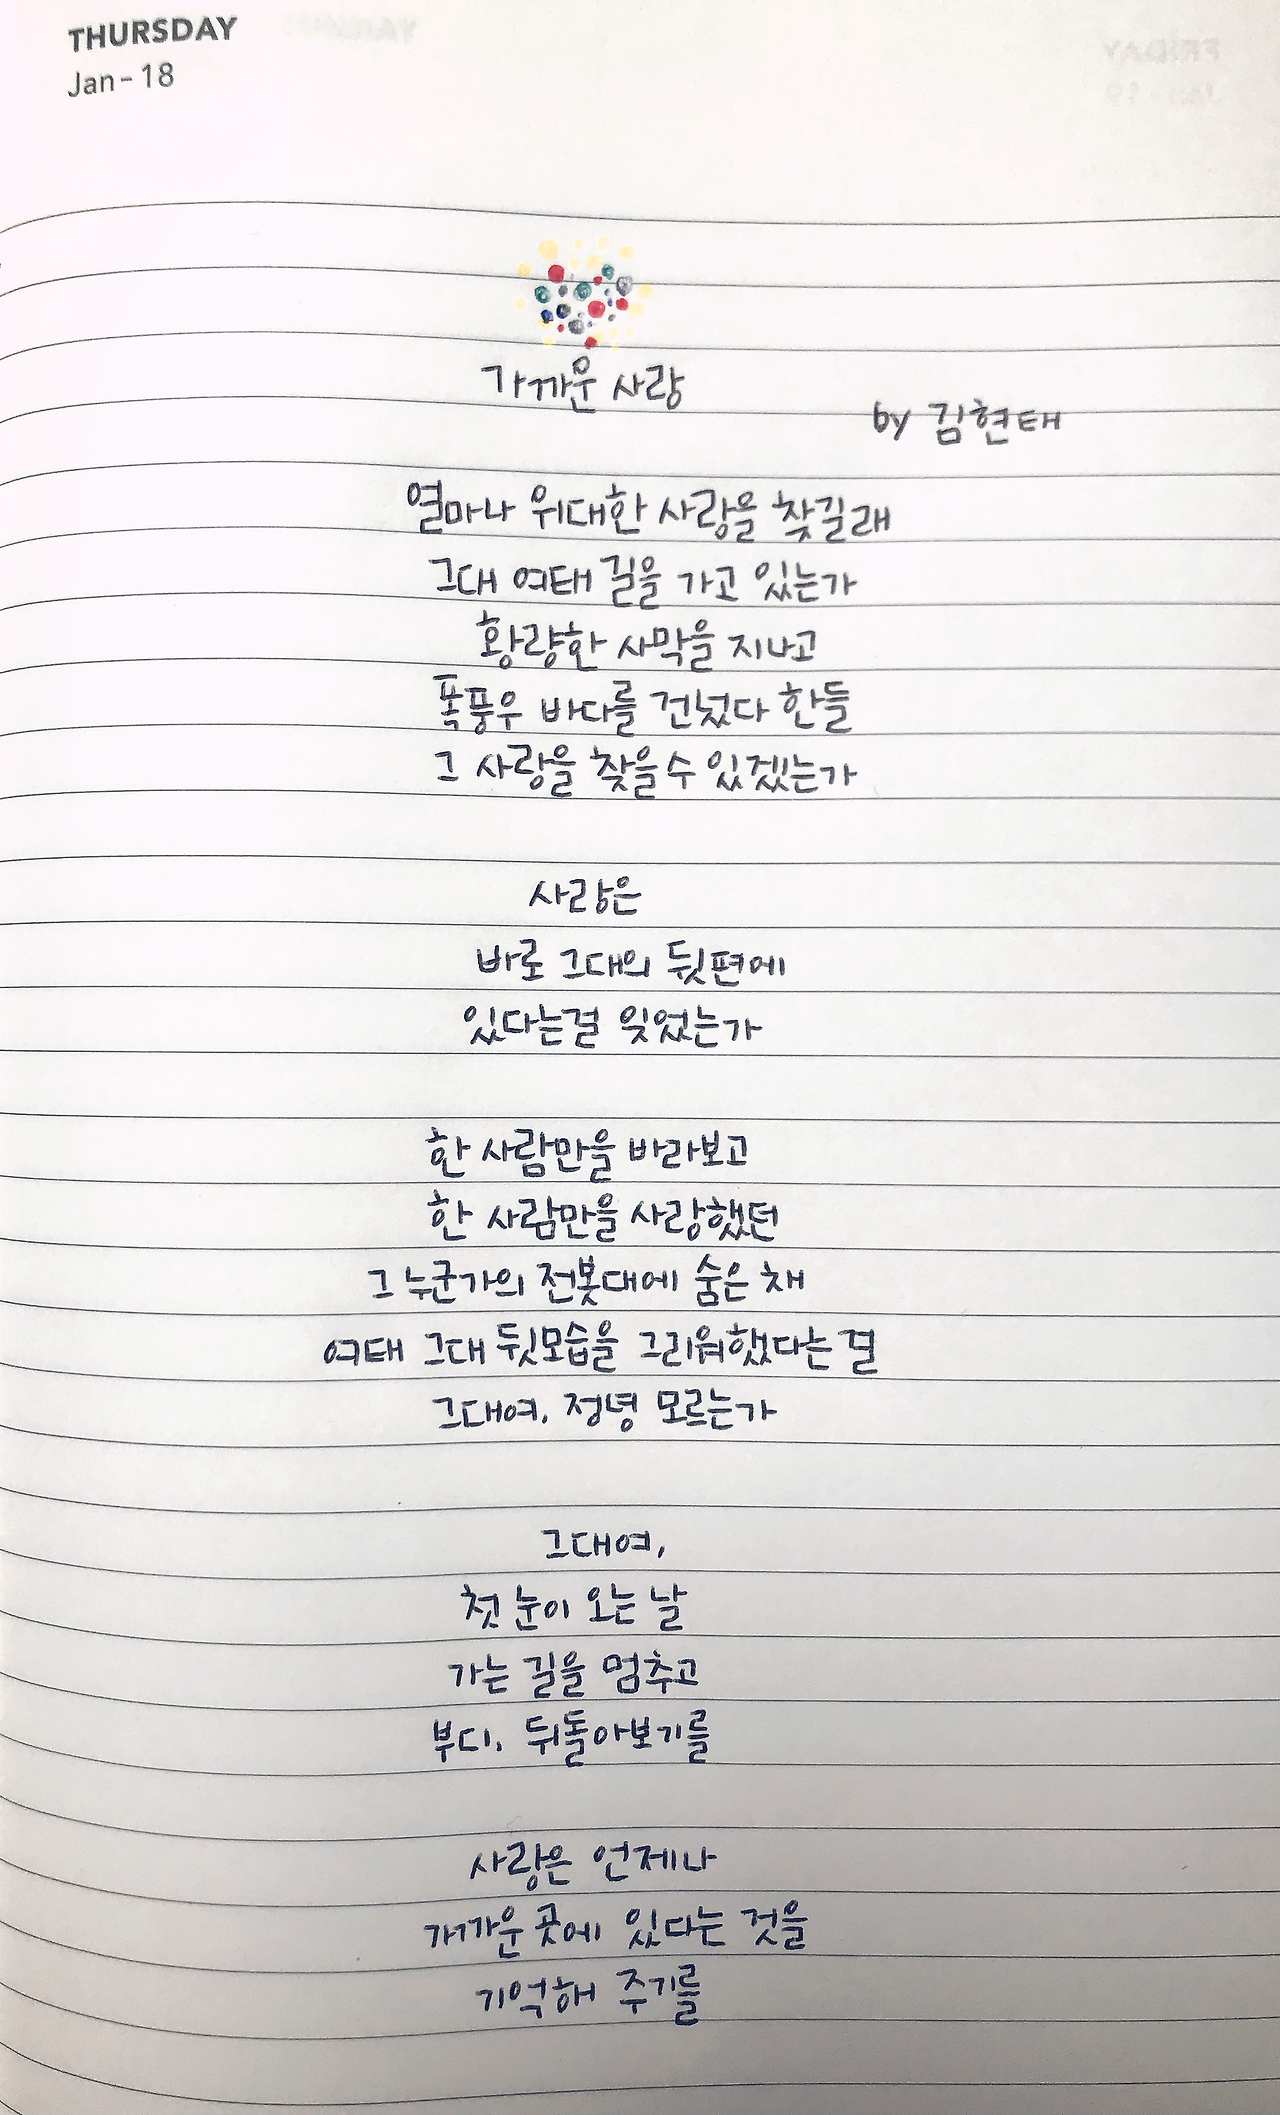 THURSDAY
Jan-18
가까운 사랑
by 김현태
얼마나 위대한 사랑을 찾길래
그대 여태 길을 가고 있는가
황량한 사막을 지나고
폭풍우 바다를 건넜다 한들
그 사랑을 찾을수 있겠는가
사랑은
바로 그대의 뒷편에
있다는걸 잊었는가
한 사람만을 바라보고
한 사람만을 사랑했던
그 누군가의 전봇대에 숨은 채
여태 그대 뒷모습을 그리워했다는 걸
그대여, 정녕 모르는가
그대여,
첫 눈이 오는 날
가는 길을 멈추고
부디, 뒤돌아보기를
사랑은 언제나
가까운 곳에 있다는 것을
기억해 주기를